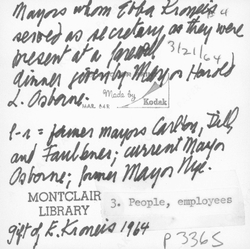 Mayors whom Edna Kroneis
served as secretary as they were
present at a farewell 3/21/64
dinner given by Mayor Harold
L. Osborne.
Made by
Kodak
MAR
l-r = former mayors Carlson,
and Faulkner; current Mayor
Osborne; former Mayor Nye.
MONTCLAIR
LIBRARY
3. People, employees
gift of E. Kroneis 1964
P 3365